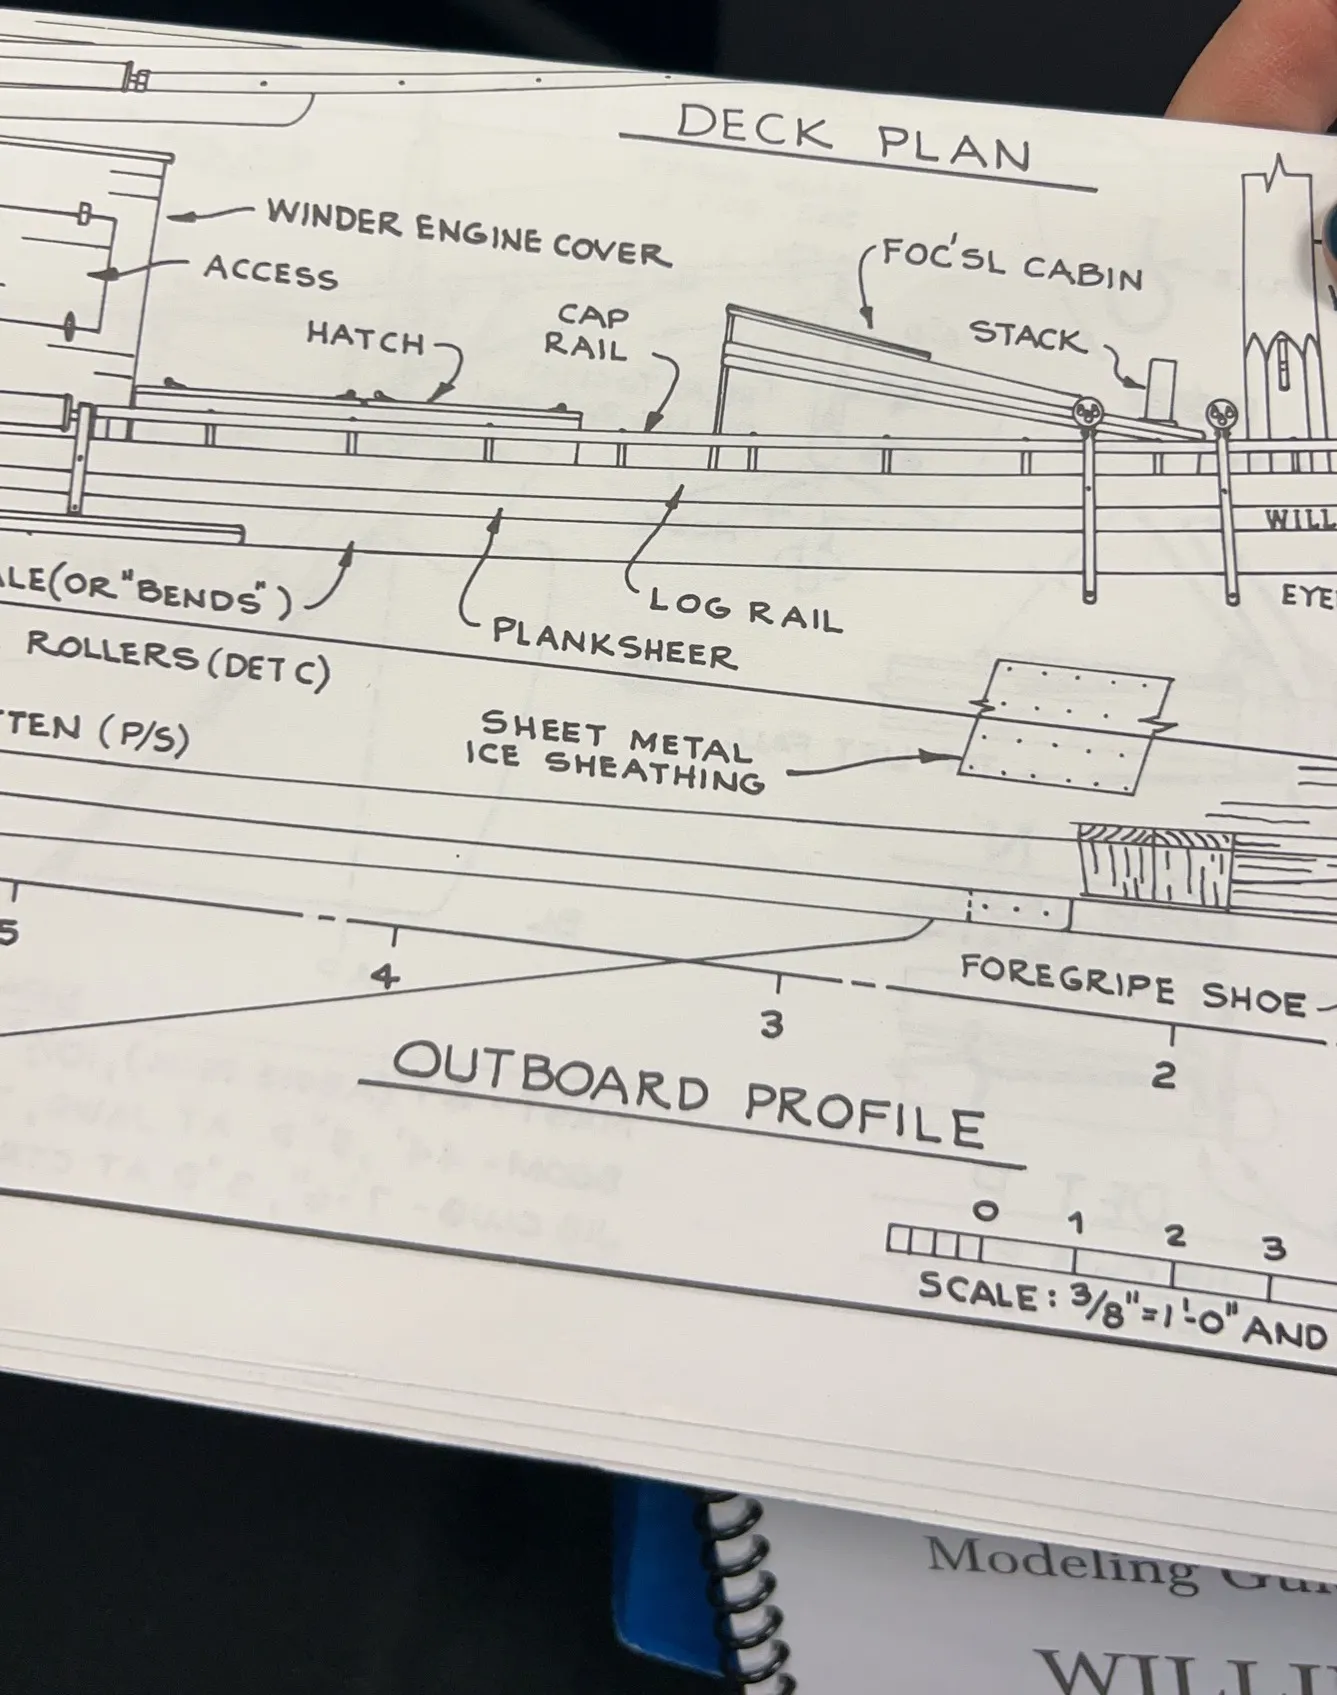 DECK PLAN
WINDER ENGINE COVER
ACCESS
FOC'SL CABIN
HATCH
CAP
RAIL
STACK
WILL
EYE
LE (OR "BENDS")
LOG RAIL
PLANKSHEER
ROLLERS (DET C)
TEN (P/S)
SHEET METAL
ICE SHEATHING
FOREGRIPE SHOE
5
4
3
2
OUTBOARD PROFILE
0 1 2 3
SCALE: 3/8" = 1'-0" AND
Modeling
WILLI